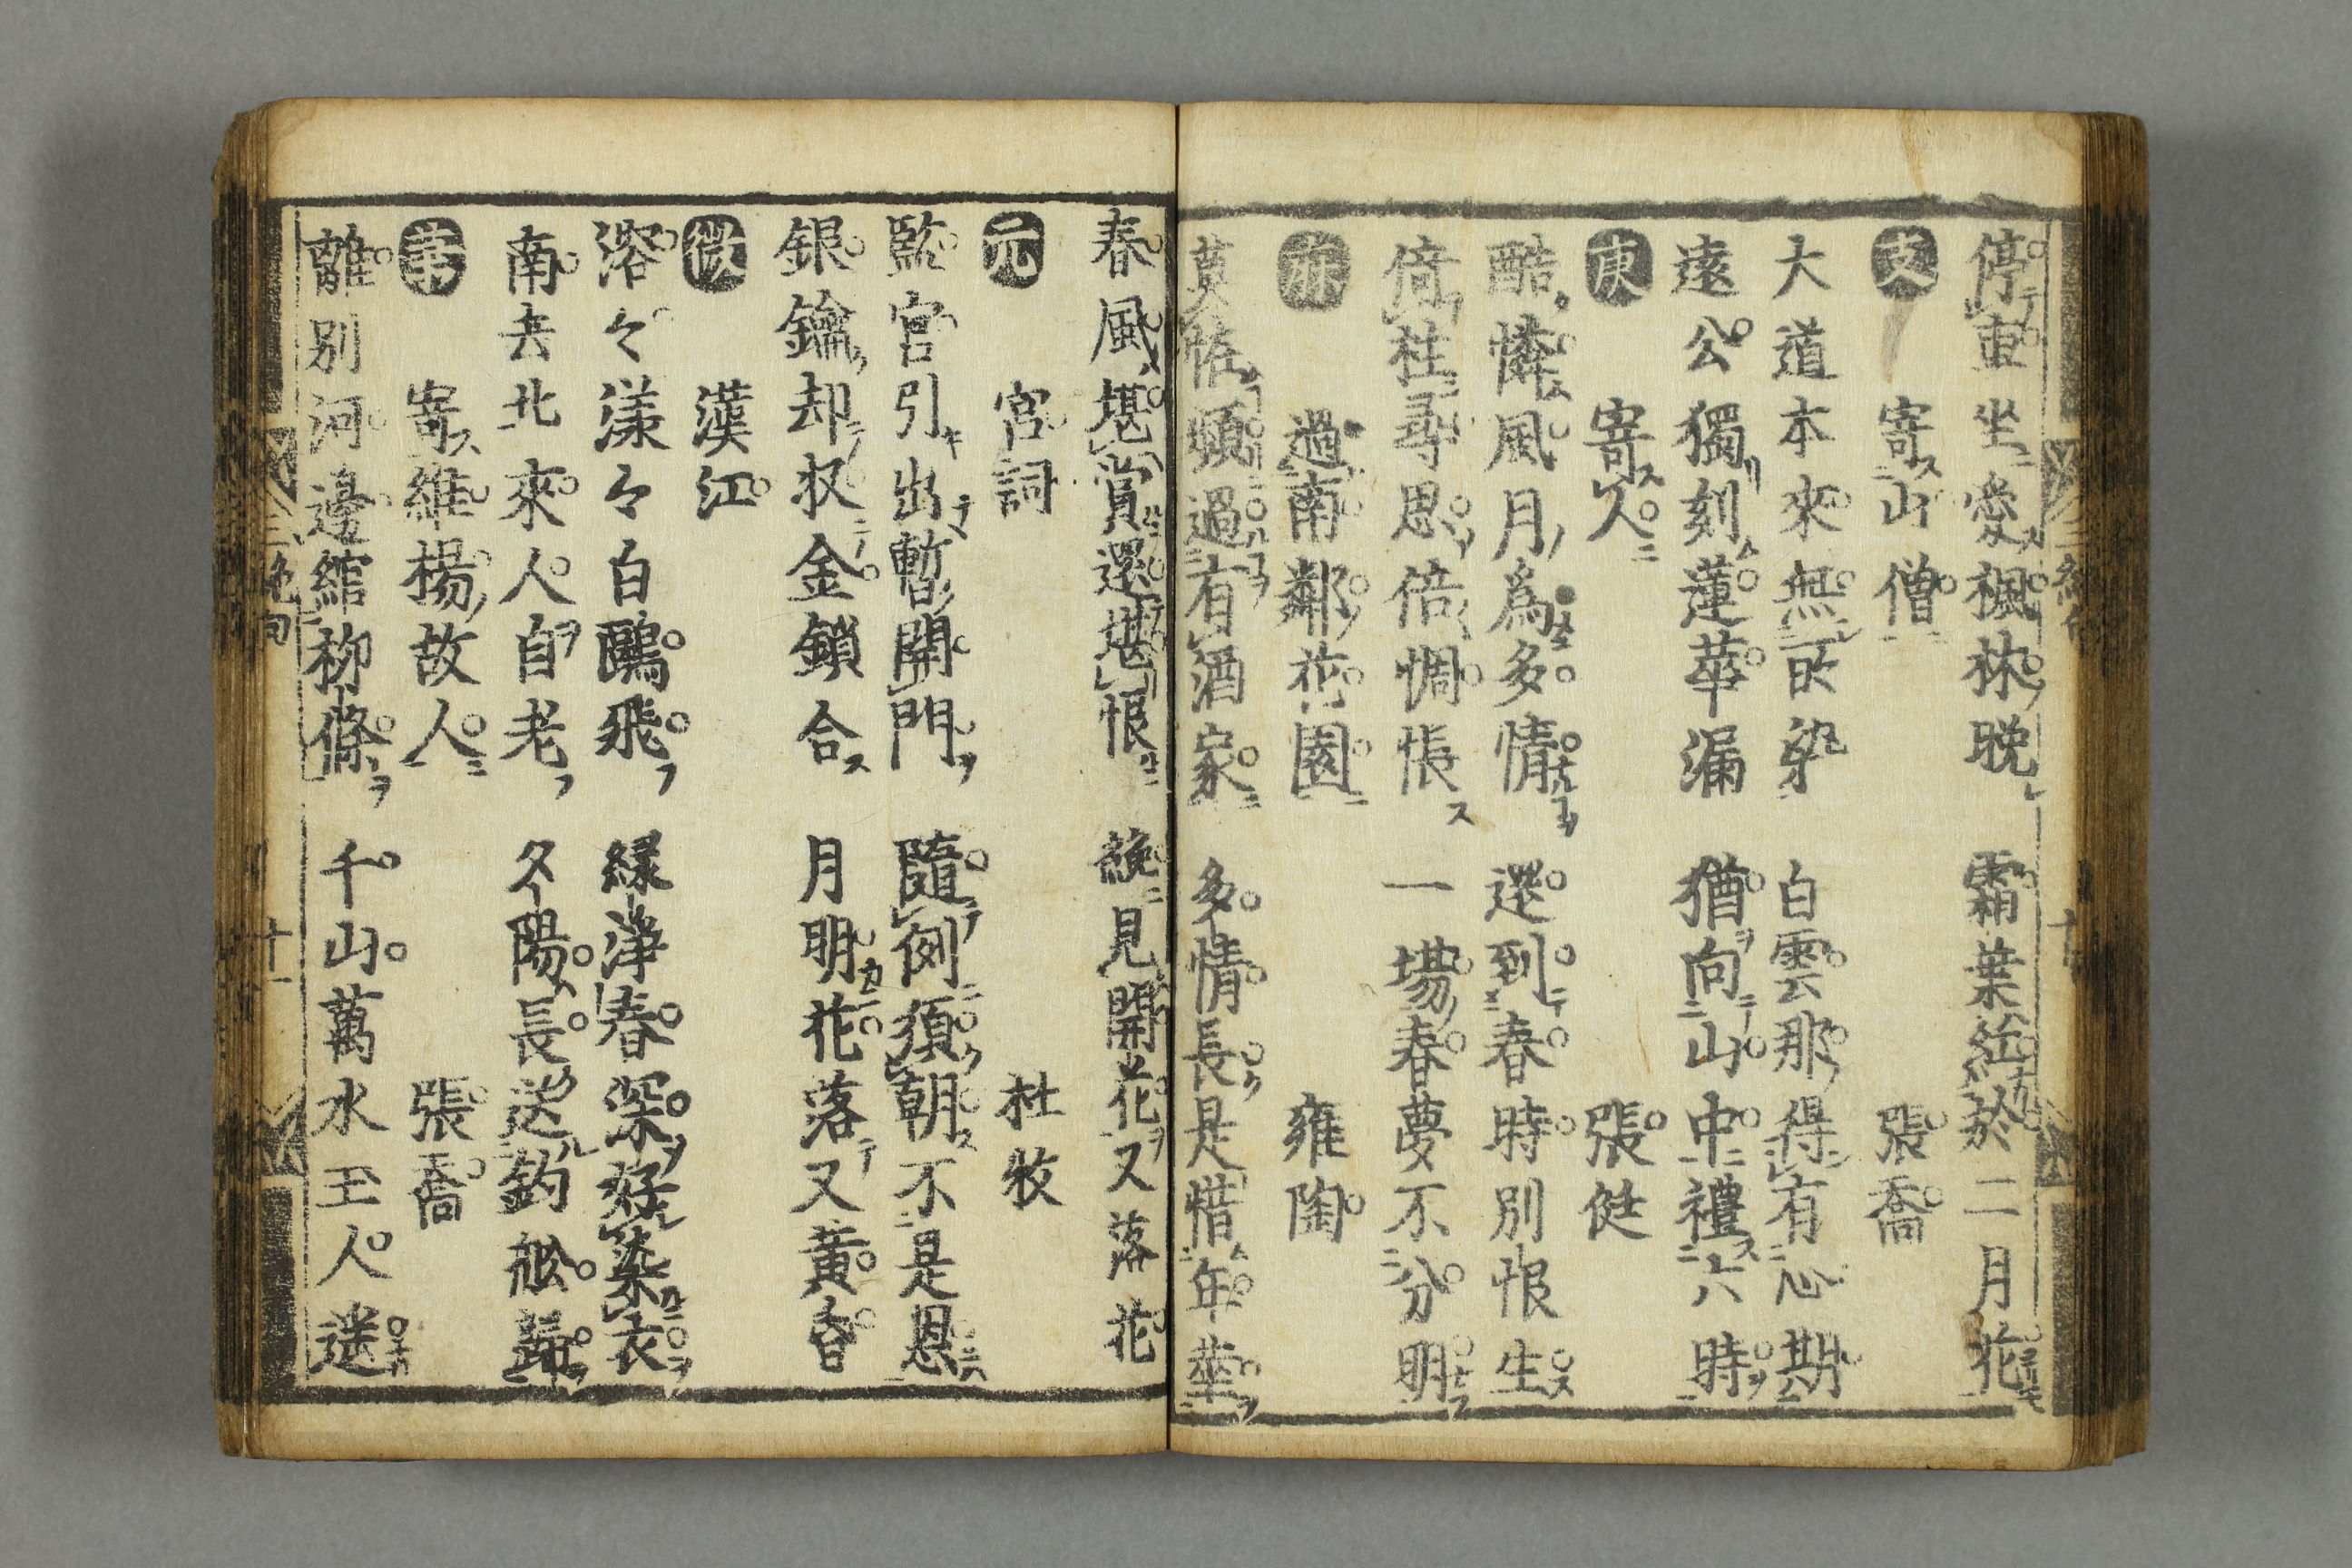 停車坐愛楓林晩 霜葉紅於二月花
支 寄山僧 張喬
大道本來無所染 白雲那得有心期
遠公獨刻蓮華漏 猶向山中禮六時
庚 寄人 張侹
酷憐風月為多情 還到春時別恨生
倚柱尋思倍惆悵 一場春夢不分明
麻 過南鄰花園 雍陶
莫恠頻過有酒家 多情長是惜年華
春風堪賞還堪恨 纔見開花又落花
元 宮詞 杜牧
監宮引出暫開門 隨例須朝不是恩
銀鑰却収金鎖合 月明花落又黃昏
微 漢江
溶々漾々白鷗飛 緑淨春深好染衣
南去北來人自老 夕陽長送釣舩歸
蕭 寄維楊故人 張喬
離別河邊綰柳條 千山萬水玉人遥
絶句 十一